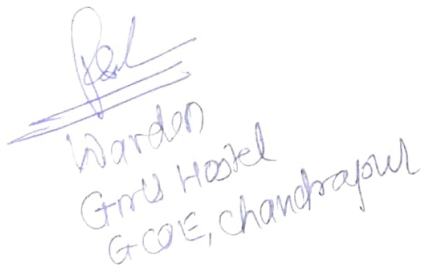 Warden
Girls Hostel
GCOE, Chandrapur